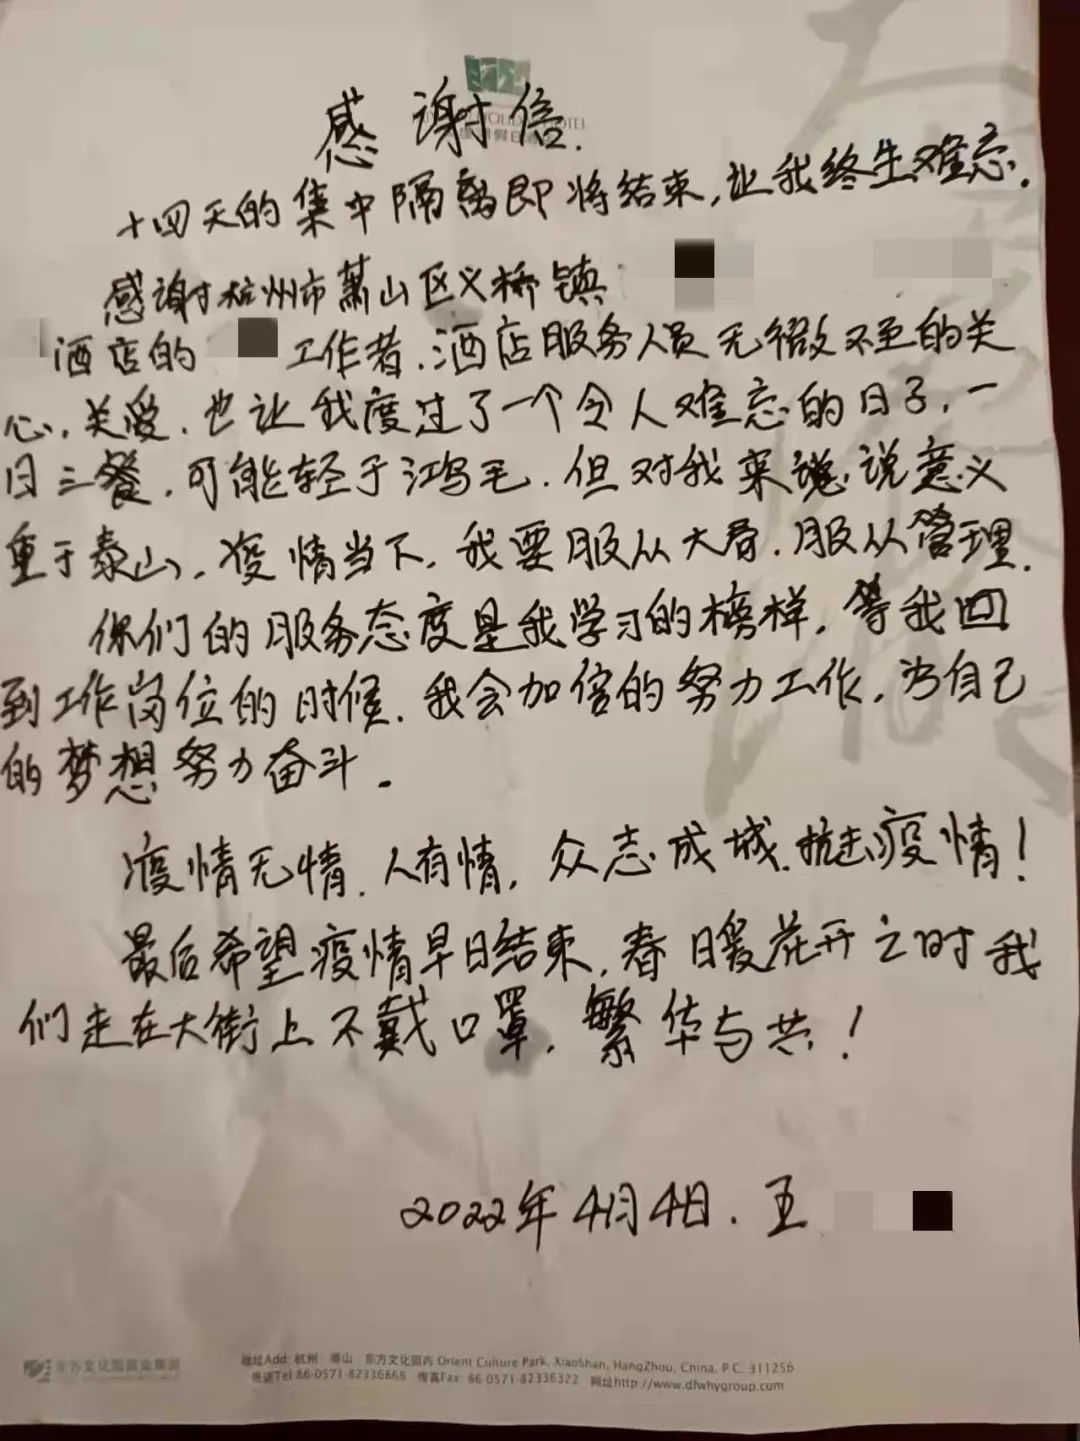 感谢信.
十四天的集中隔离即将结束,让我终生难忘.
感谢杭州市萧山区义桥镇
酒店的 工作者.酒店服务人员无微不至的关
心.关爱.也让我度过了一个令人难忘的日子,一
日三餐.可能轻于鸿毛.但对我来说说意义
重于泰山,疫情当下,我要服从大局.服从管理.
你们的服务态度是我学习的榜样,等我回
到工作岗位的时候.我会加倍的努力工作,为自己
的梦想努力奋斗.
疫情无情.人有情,众志成城.抗击疫情!
最后希望疫情早日结束,春日暖花开之时我
们走在大街上不戴口罩.繁华与共!
2022年4月4日.王
东方文化园旅业集团
地址Add: 杭州·萧山·东方文化园内 Orient Culture Park, XiaoShan, HangZhou, China, P.C. 311256
电话Tel:86-0571-82336868 传真Fax: 86-0571-82336322 网址http://www.dfwhygroup.com